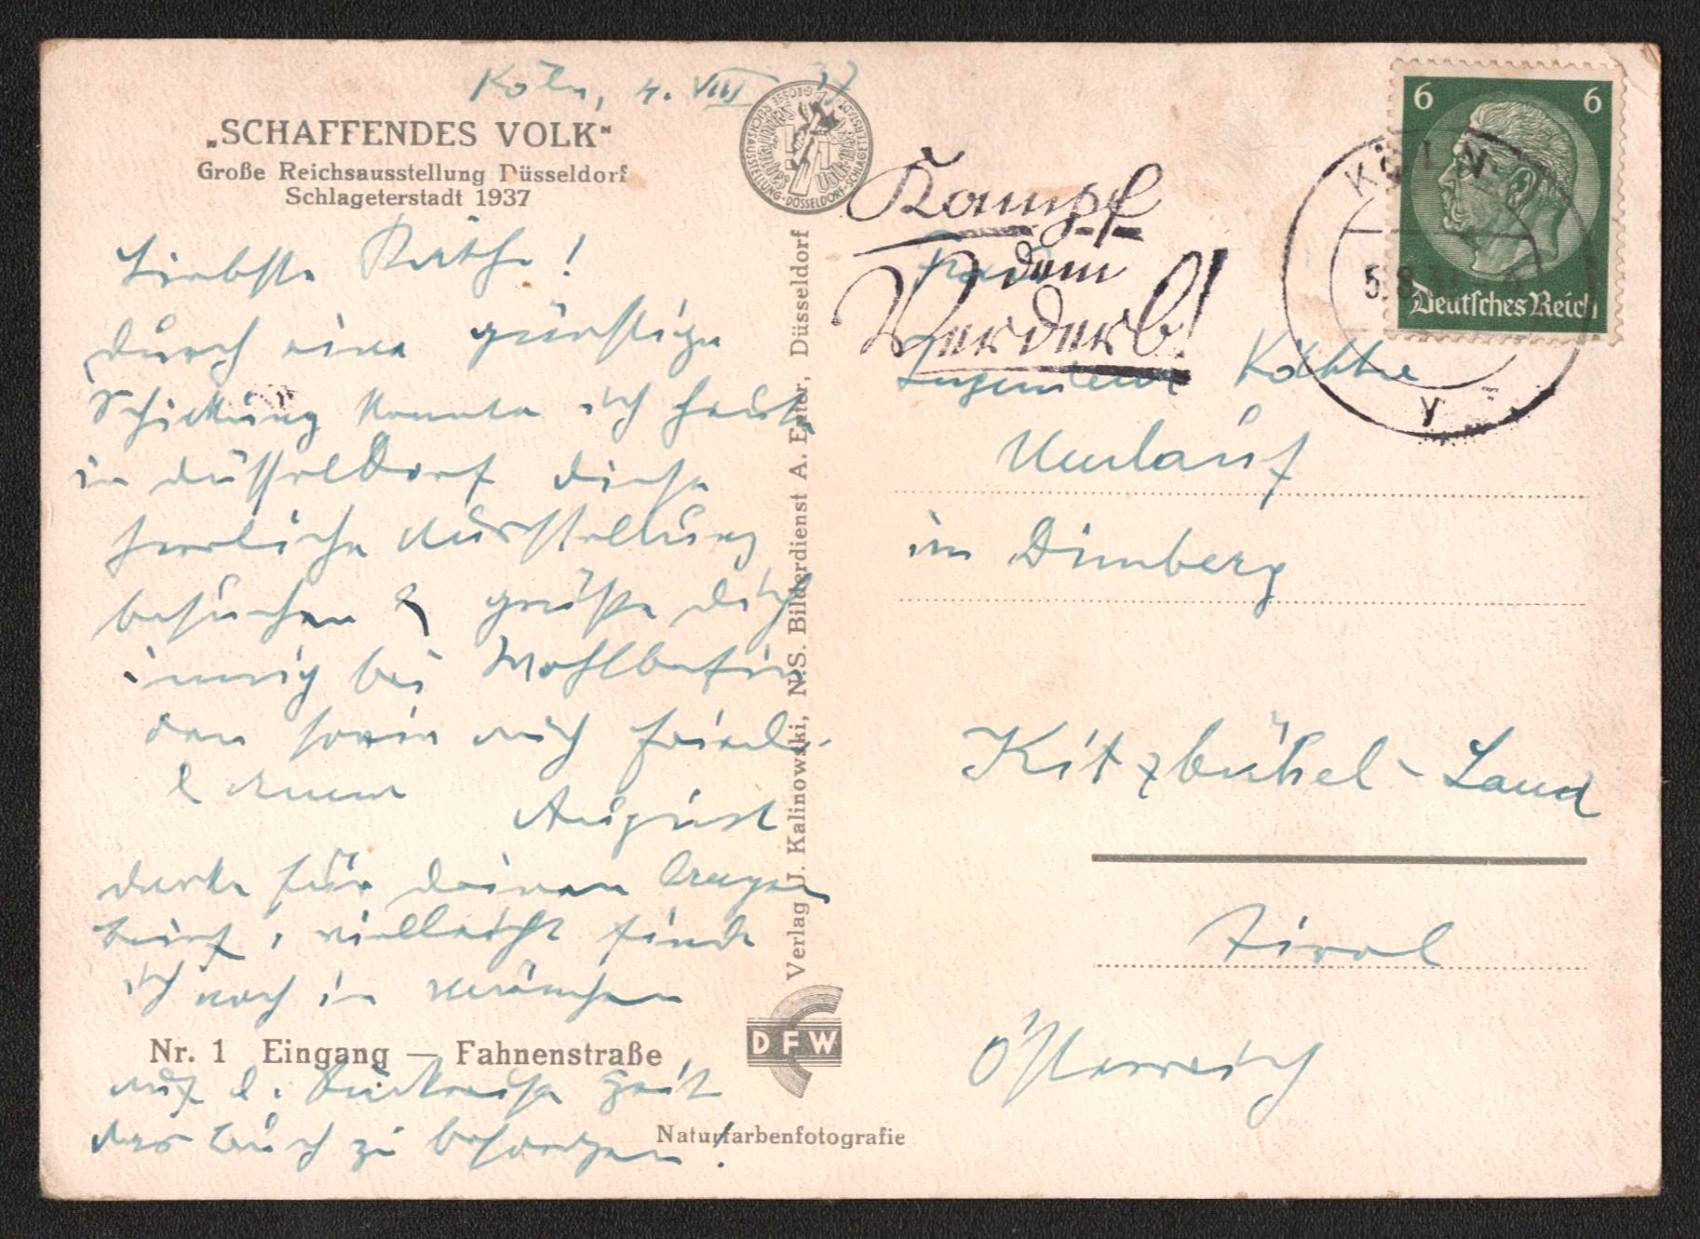 Köln, 4. VIII 37
„SCHAFFENDES VOLK“
Große Reichsausstellung Düsseldorf
Schlageterstadt 1937
Liebste Käthe!
durch eine günstige
Schickung konnte ich heute
in Düsseldorf diese
herrliche Ausstellung
besuchen & grüße dich
innig bei Wohlbefin
den sowie auch
&
August
danke für deinen
brief, vielleicht finde
ich noch in München
Nr. 1 Eingang — Fahnenstraße
auf d. Rückreise Zeit
das Buch zu besorgen!
Verlag J. Kalinowski, N.S. Bilderdienst A. Euler, Düsseldorf
DFW
Naturfarbenfotografie
GROSSE REICHSAUSSTELLUNG · DÜSSELDORF-SCHLAGETERSTADT
Kampf
dem
Verderb!
KÖLN
5.8.
y
6 6
Deutsches Reich
Frau
Ingenieur Käthe
Umlauf
in Bimberg
Kitzbühel-Land
Tirol
Österreich